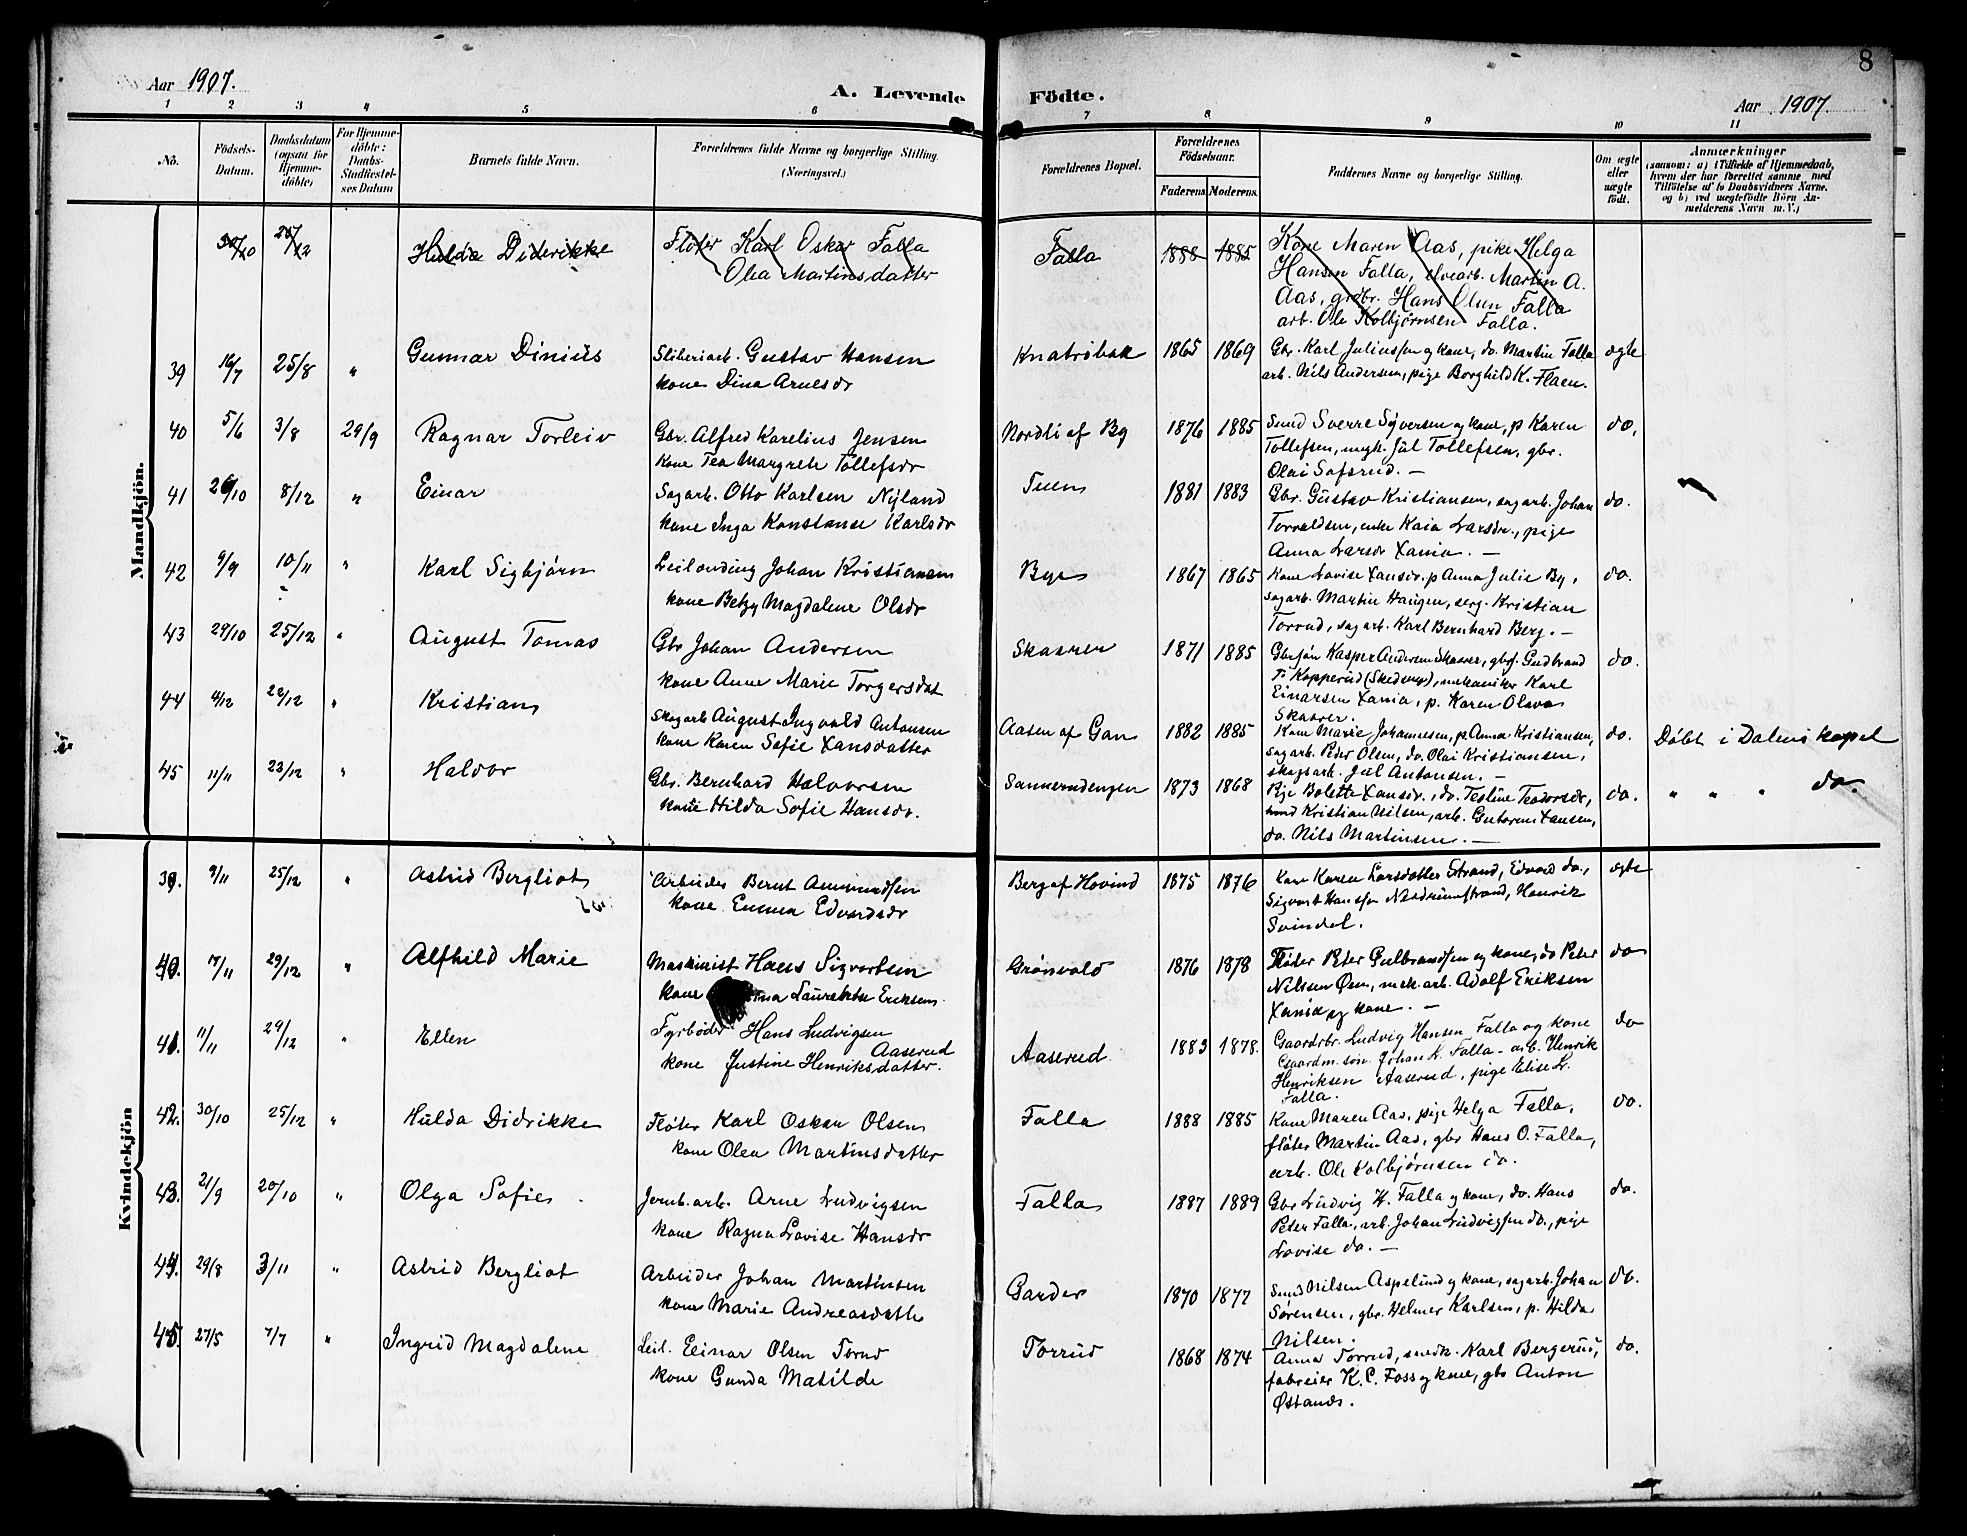 8
Aar 1907.
A. Levende Födte.
Aar 1907.
1 2 3 4 5 6 7 8 9 10 11
No.
Födsels-
Datum.
Daabsdatum
(ogsaa for
Hjemme-
döbte)
For Hjemme-
döbte:
Daabs-
Stadfæstel-
ses Datum
Barnets fulde Navn.
Forældrenes fulde Navne og borgerlige Stilling.
(Næringsvei.)
Forældrenes Bopæl.
Forældrenes
Födselsaar.
Faderens. Moderens.
Faddernes Navne og borgerlige Stilling.
Om ægte
eller
uægte
födt.
Anmærkninger
(saasom: a) i Tilfælde af Hjemmedaab,
hvem der har forrettet samme med
Tilföielse af to Daabsvidners Navne,
og b) ved uægtefödte Börn An-
melderens Navn m. V.)
Mandkjön.
30/10 Hulda Diderikke Fløter Karl Oskar Falla
Olea Martinsdatter
Falla 1888 1885 Kone Maren Aas, pike Helga
Hansen Falla, elvearb. Martin A.
Aas, grdbr. Hans Olsen Falla
arb. Ole Kolbjørnsen Falla.
39 16/7 25/8 " Gunnar Dinius Sliberiarb. Gustav Hansen
kone Dina Arnesdr
Knatrobak 1865 1869 Gbr. Karl Juliussen og kone, do. Martin Falla
arb. Nils Andersen, pige Borghild K. Flaen.
ægte
40 5/6 3/8 29/9 Ragnar Torleiv Gbr. Alfred Karelius Jensen
kone Tea Margrete Tollefsdr
Nordli af By 1876 1885 Smed Sverre Syversen og kone, p Karen
Tollefsen, Jul Tollefsen, gbr.
Olai Sofsrud. —
do.
41 26/10 8/12 " Einar Sagarb. Otto Karlsen Nyland
kone Inga Konstanse Karlsdr
Tuen 1881 1883 Gbr. Gustav Kristiansen, sagarb. Johan
Torvaldsen, enke Kaia Larsdr., pige
Anna Larsdr Xania. —
do.
42 9/9 10/11 " Karl Sigbjørn Leilending Johan Kristiansen
kone Betzy Magdalene Olsdr
Bye 1867 1865 Kone Lovise Hansdr. p Anna Julie By,
sagarb. Martin Haugen, serg. Kristian
Torrud, sagarb. Karl Bernhard Berg. —
do.
43 29/10 25/12 " August Tomas Gbr Johan Andersen
kone Anne Marie Torgersdat
Skaarer 1871 1885 Gbrsøn Kasper Andersen Skaarer, gbrs. Gudbrand
P. Kopperud (Skedsmo), mekaniker Karl
Einarsen Xania, p. Karen Olava
Skaarer.
do.
44 4/12 22/12 " Kristian Skogarb August Ingvald Antonsen
kone Karen Sofie Hansdatter
Aasen af Gan 1882 1885 Kone Marie Johannesen, p. Anna Kristiansen,
sagarb. Peder Olsen, do. Olai Kristiansen,
skogsarb. Jul Antonsen. —
do. Døbt i Dalens kapel
45 11/11 23/12 " Haldor Gbr. Bernhard Halvorsen
kone Hilda Sofie Hansdr.
Sannerudengen 1873 1868 Pige Bolette Hansdr., do. Teoline Teodorsdr,
Kristian Nilsen, arb. Guttorm Hansen,
do. Nils Martinsen. —
do. " " " do.
Kvindekjön
39. 9/11 25/12 " Astrid Bergliot Arbeider Bernt Amundsen
kone Emma Edvardsdr
Berg af Hovind 1875 1876 Kone Karen Larsdatter Strand, Edvard do.,
Sigvart Hansen Nordrumstrand, Henrik
Svindal.
ægte
40. 17/11 29/12 " Alfhild Marie Maskinist Hans Sigvartsen
kone Lauretse Eriksen.
Grønvold 1876 1878 Fløter Peter Gulbrandsen og kone, do Peter
Nilssen Øien, mek. arb. Adolf Eriksen
Xania og kone. —
do
41. 11/11 29/12 " Ellen Fyrbøder Hans Ludvigsen
Aaserud
kone Justine Henriksdatter.
Aaserud 1883 1878. Gaardbr. Ludvig Hansen Falla og kone
Gaardm. søn Johan L. Falla - arb. Henrik
Henriksen Aaserud, pige Elise L.
Falla.
do
42. 30/10 25/12 " Hulda Didrikke Fløter Karl Oskar Olsen
kone Olea Martinsdatter
Falla 1888 1885 Kone Maren Aas, pige Helga Falla,
fløter Martin Aas, gbr Hans O. Falla,
arb. Ole Kolbjørnsen do.
do.
43. 21/9 20/10 " Olga Sofie Jernb. arb. Arne Ludvigsen
kone Ragna Lovise Hansdr
Falla 1887 1889 Gbr Ludvig H. Falla og kone, do. Hans
Peter Falla, arb. Johan Ludvigsen do., pige
Lovise do. —
do.
44. 29/8 3/11 " Astrid Bergliot Arbeider Johan Martinsen
kone Marie Andreasdatter
Garder 1870 1877 Smed Nilsen Aspelund og kone, sagarb. Johan
Sørensen, gbr. Helmer Karlsen, p. Hilda
Nilsen.
do.
45. 27/5 7/7 " Ingrid Magdalene Leil. Einar Olsen Torrud
kone Gunda Matilde
Torrud 1868 1874 Anna Torrud, smedk. Karl Bergerud,
fabreier K. C. Foss og kone, gbr Anton
Østands.
do.